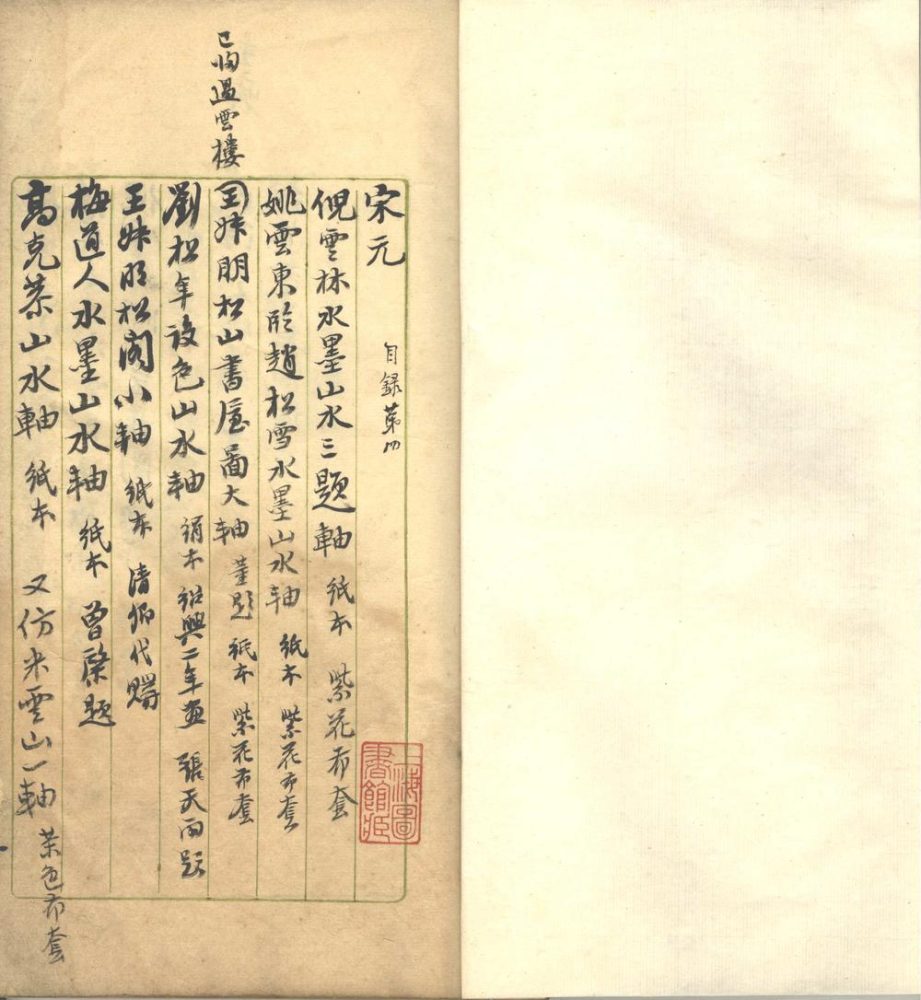 宋元
目錄第四
倪雲林水墨山水三題軸 紙本 紫花布套
姚雲東臨趙松雪水墨山水軸 紙本 紫花布套
已歸過雲樓
王叔明松山書屋圖大軸 董題 紙本 紫花布套
劉松年設色山水軸 絹本 紹興二年畫 張天雨題
王叔明松閣小軸 紙本 清卿代購
梅道人水墨山水軸 紙本 曾棨題
高克恭山水軸 紙本 又仿米雲山一軸 茶色布套
上海圖書館藏